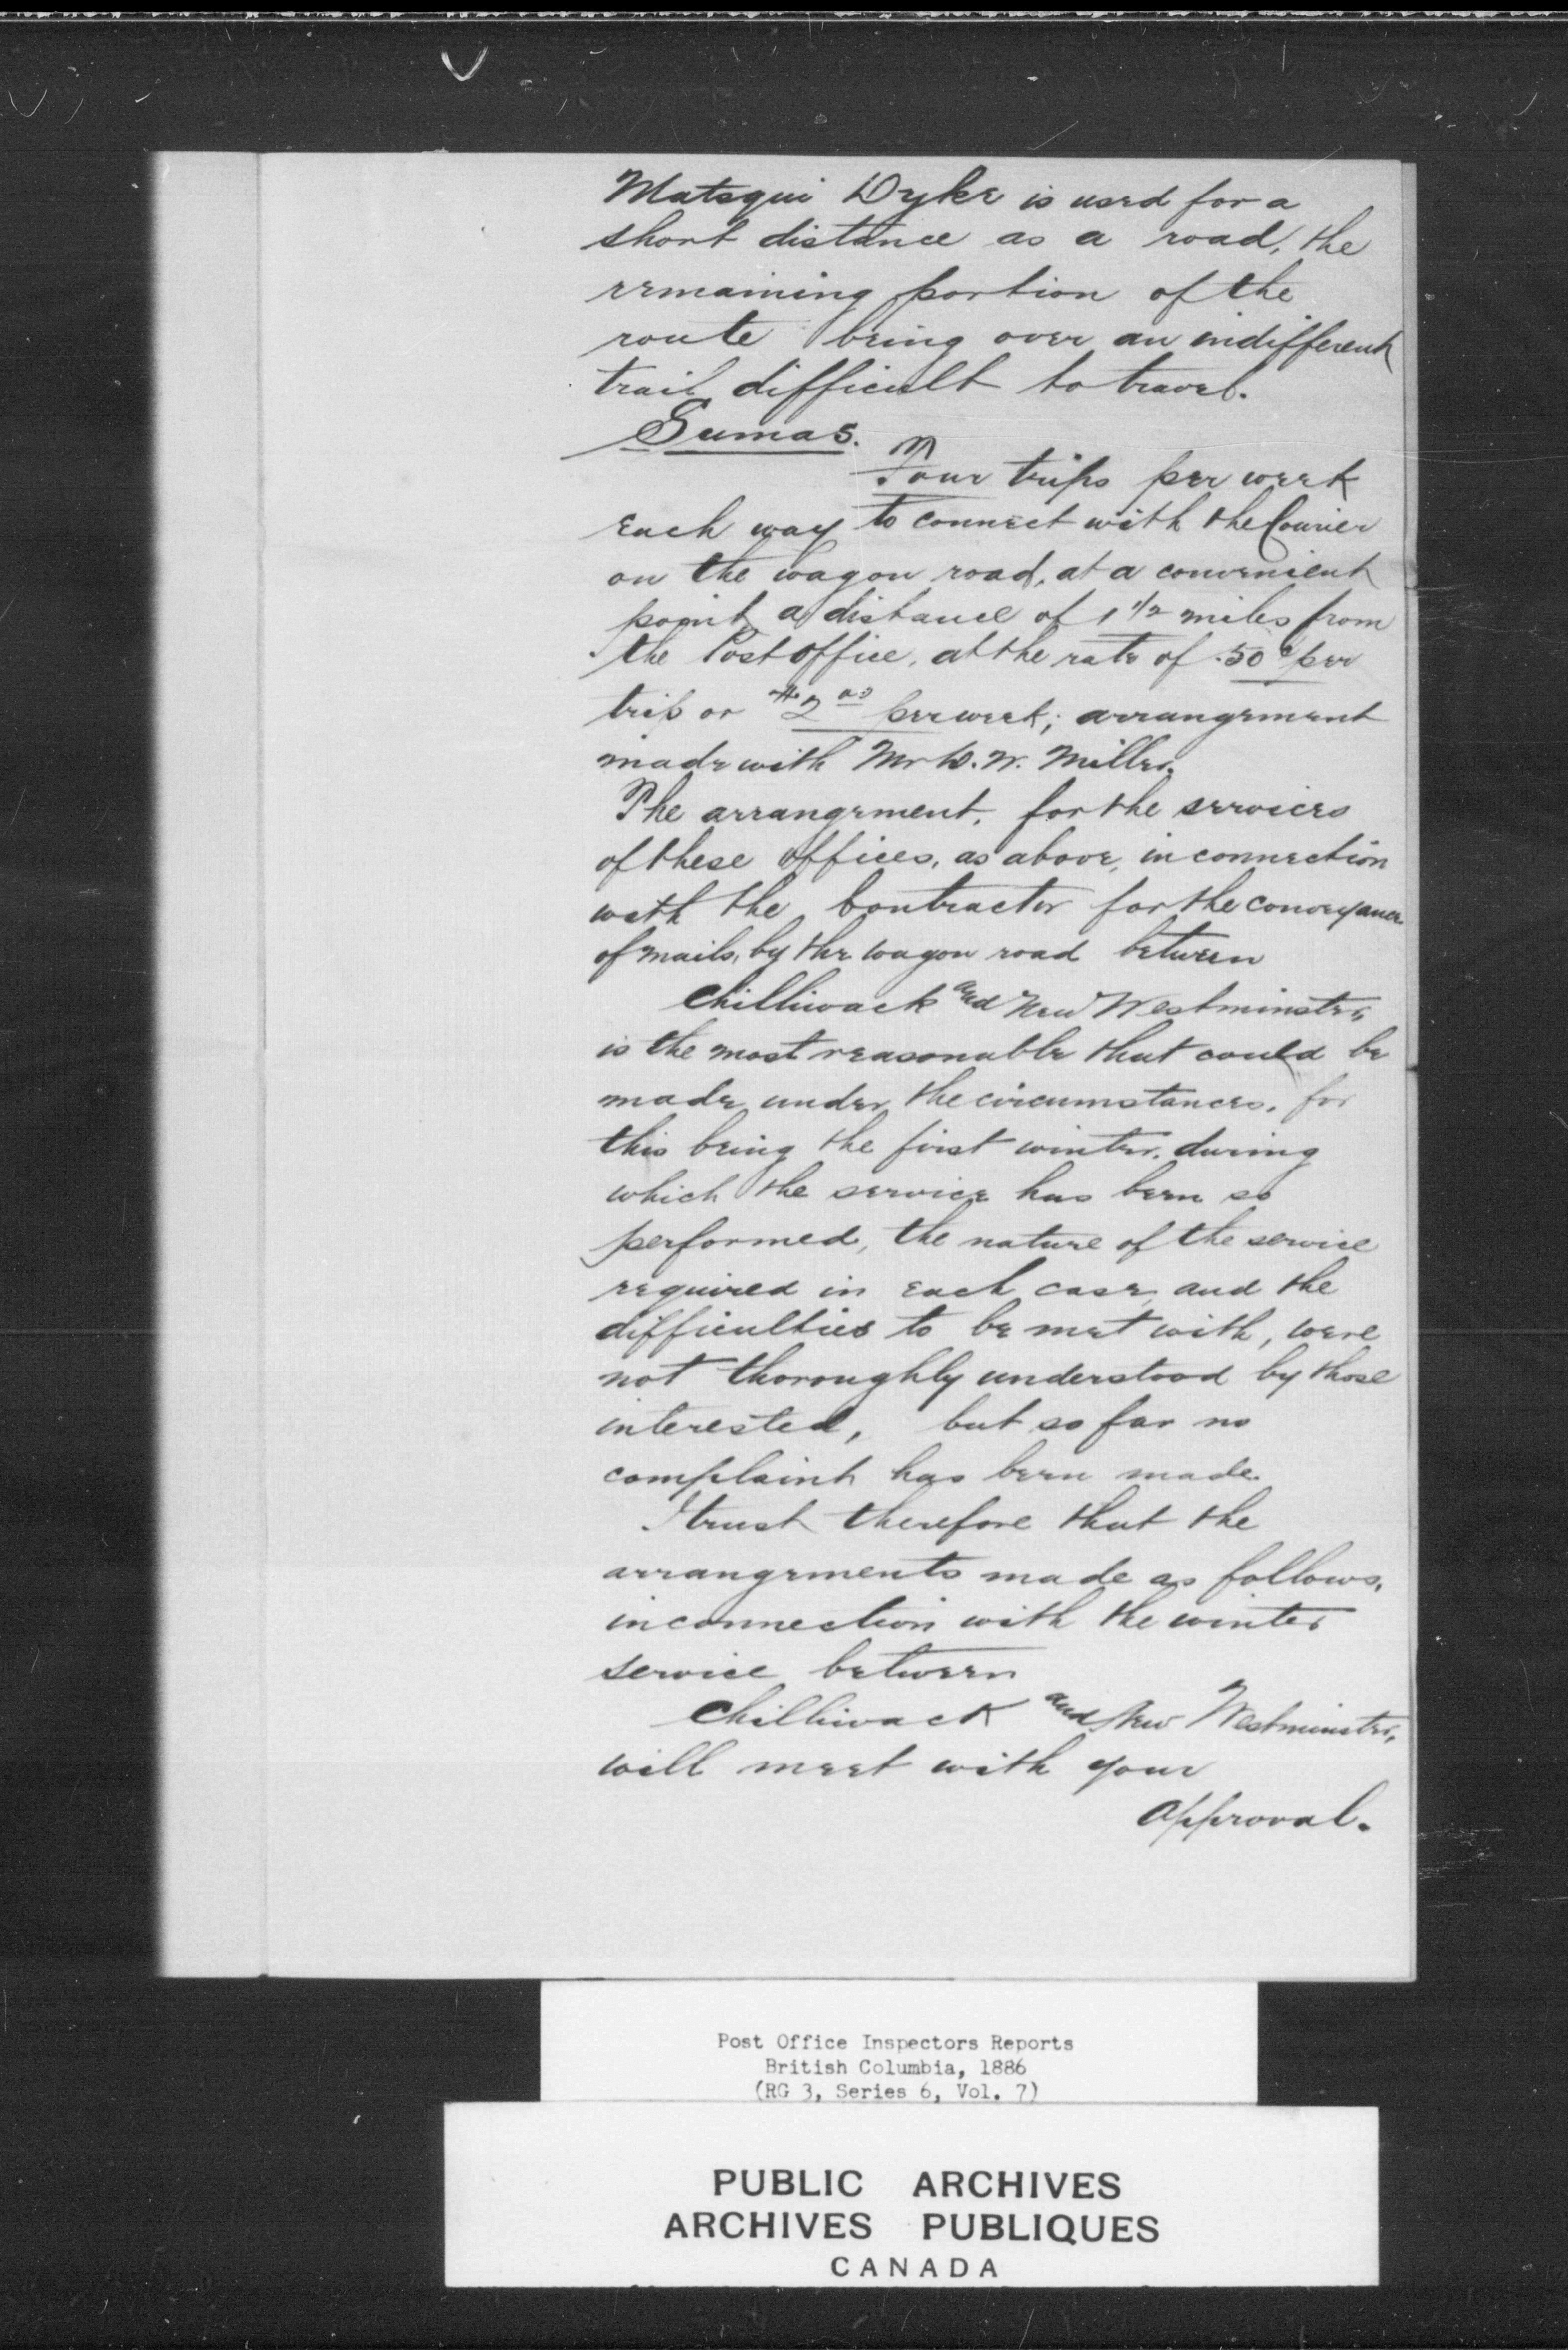 Matsqui Dyke is used for a
short distance as a road, the
remaining portion of the
route being over an indifferent
trail difficult to travel.
Sumas.
Four trips per week
each way to connect with the Courier
on the wagon road, at a convenient
point a distance of 1 1/2 miles from
the Post office, at the rate of .50c per
trip or $2.00 per week; arrangement
made with Mr D. W. Miller.
The arrangement, for the services
of these offices, as above, in connection
with the Contractor for the conveyance
of mails, by the wagon road between
Chilliwack and New Westminster,
is the most reasonable that could be
made under the circumstances, for
this being the first winter, during
which the service has been so
performed, the nature of the service
required in each case, and the
difficulties to be met with, were
not thoroughly understood by those
interested, but so far no
complaint has been made.
I trust therefore that the
arrangements made as follows,
in connection with the winter
service between
Chilliwack and New Westminster,
will meet with your
approval.
Post Office Inspectors Reports
British Columbia, 1886
(RG 3, Series 6, Vol. 7)
PUBLIC ARCHIVES
ARCHIVES PUBLIQUES
CANADA